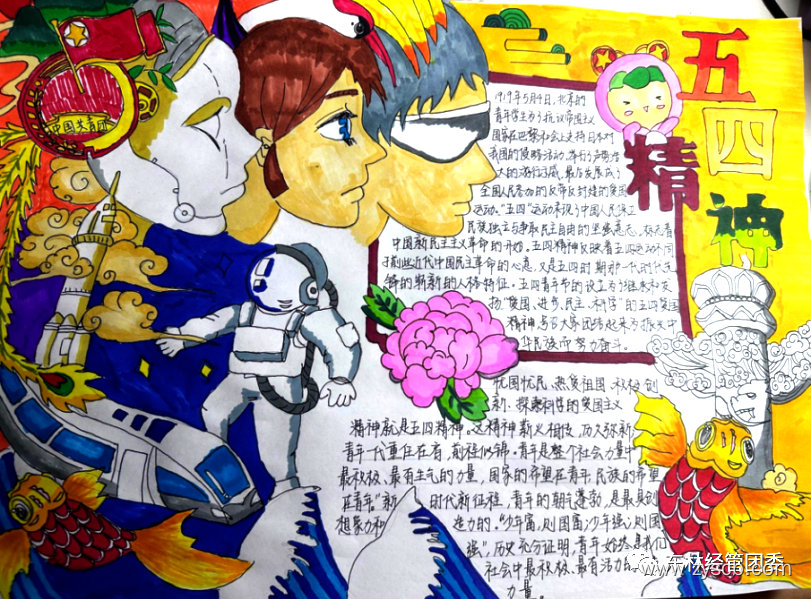 五四
精神
中国共青团
1919年5月4日,北京的
青年学生为了抗议帝国主义
国家在巴黎和会上支持日本对
我国的侵略活动,举行了声势浩
大的游行示威,最后发展成了
全国人民参加的反帝反封建的爱国
运动。"五四"运动表现了中国人民保卫
民族独立与争取民主自由的坚强意志,标志着
中国新民主主义革命的开始。五四精神反映着五四运动不同
于前些近代中国民主革命的心态,又是五四时期那一代时代先
锋的崭新的人格特征。五四青年节的设立为了继承和发
扬"爱国、进步、民主、科学"的五四爱国
精神,号召大家团结起来为振兴中
华民族而努力奋斗。
忧国忧民、热爱祖国、积极创
新、探索科学的爱国主义
精神就是五四精神。这精神薪火相传,历久弥新
青年一代重任在肩,前程似锦。青年是整个社会力量中
最积极、最有生气的力量,国家的希望在青年,民族的希望
在青年。新时代新征程,青年的朝气蓬勃,是最具创
想象力和 造力的。"少年富,则国富,少年强,则国
强",历史充分证明,青年始终是我们
社会中最积极、最有活力
力量。
东林经管团委
www.zysob.com